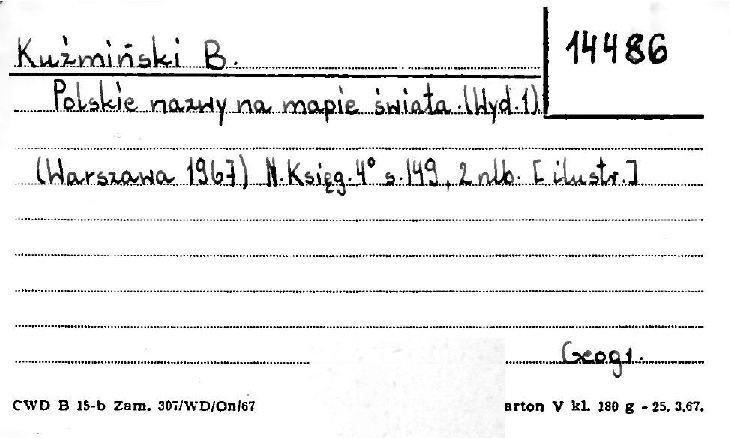 Kuźmiński B.
14486
Polskie nazwy na mapie świata. (Wyd. 1)
(Warszawa 1967) N. Księg. 4° s. 149, 2 nlb. [ilustr.]
Geogr.
CWD B 15-b Zam. 307/WD/On/67
arton V kl. 180 g - 25. 3.67.